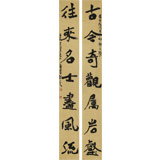 古今奇觀屬岩壑
往來名士盡風流